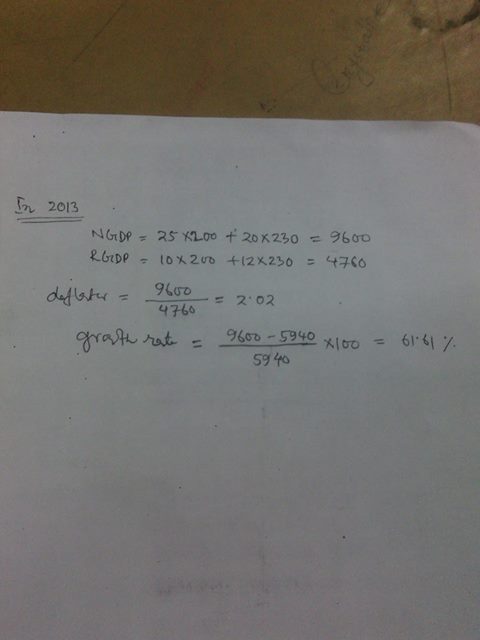 In 2013
NGDP = 25 × 200 + 20 × 230 = 9600
RGDP = 10 × 200 + 12 × 230 = 4760
deflater = 9600 / 4760 = 2.02
growth rate = 9600 - 5940 / 5940 × 100 = 61.61 %